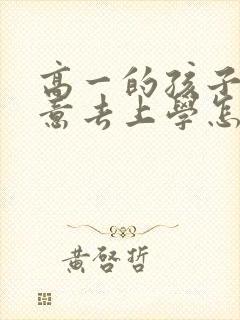 高一的孩子
意去上學怎
黃啓哲